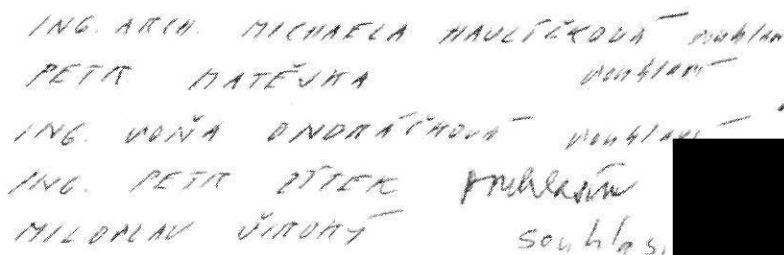 ING. ARCH. MICHAELA HAVLÍČKOVÁ souhlasí
PETR MATĚJKA souhlasí
ING. SOŇA ONDRÁČKOVÁ souhlasí
ING. PETR PÍTEK souhlasím
MILOSLAV ŠIROKÝ souhlasí